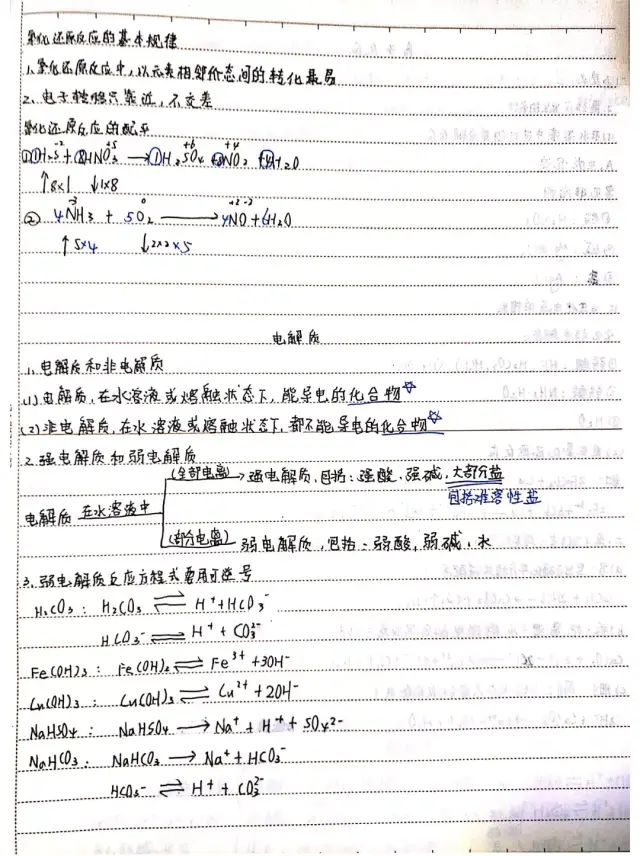 氧化还原反应的基本规律
1、氧化还原反应中,以元素相邻价态间的转化最易
2、电子转移只靠近,不交差
氧化还原反应的配平
-2 +5 +6 +4
①1H₂S+8HNO₃→1H₂SO₄+8NO₂+4H₂O
↑8×1 ↓1×8
-3 0 +2 -2
②4NH₃+5O₂→4NO+6H₂O
↑5×4 ↓2×2×5
电解质
1、电解质和非电解质
(1)电解质,在水溶液或熔融状态下,能导电的化合物☆
(2)非电解质,在水溶液或熔融状态下,都不能导电的化合物☆
2、强电解质和弱电解质
(全部电离)→强电解质,包括:强酸、强碱,大部分盐
包括难溶性盐
电解质 在水溶液中
(部分电离)弱电解质,包括:弱酸,弱碱、水
3、弱电解质反应方程式要用可逆号
H₂CO₃: H₂CO₃⇌H⁺+HCO₃⁻
HCO₃⁻⇌H⁺+CO₃²⁻
Fe(OH)₃: Fe(OH)₃⇌Fe³⁺+3OH⁻
Cu(OH)₃: Cu(OH)₃⇌Cu²⁺+2OH⁻
NaHSO₄: NaHSO₄→Na⁺+H⁺+SO₄²⁻
NaHCO₃: NaHCO₃→Na⁺+HCO₃⁻
HCO₃⁻⇌H⁺+CO₃²⁻